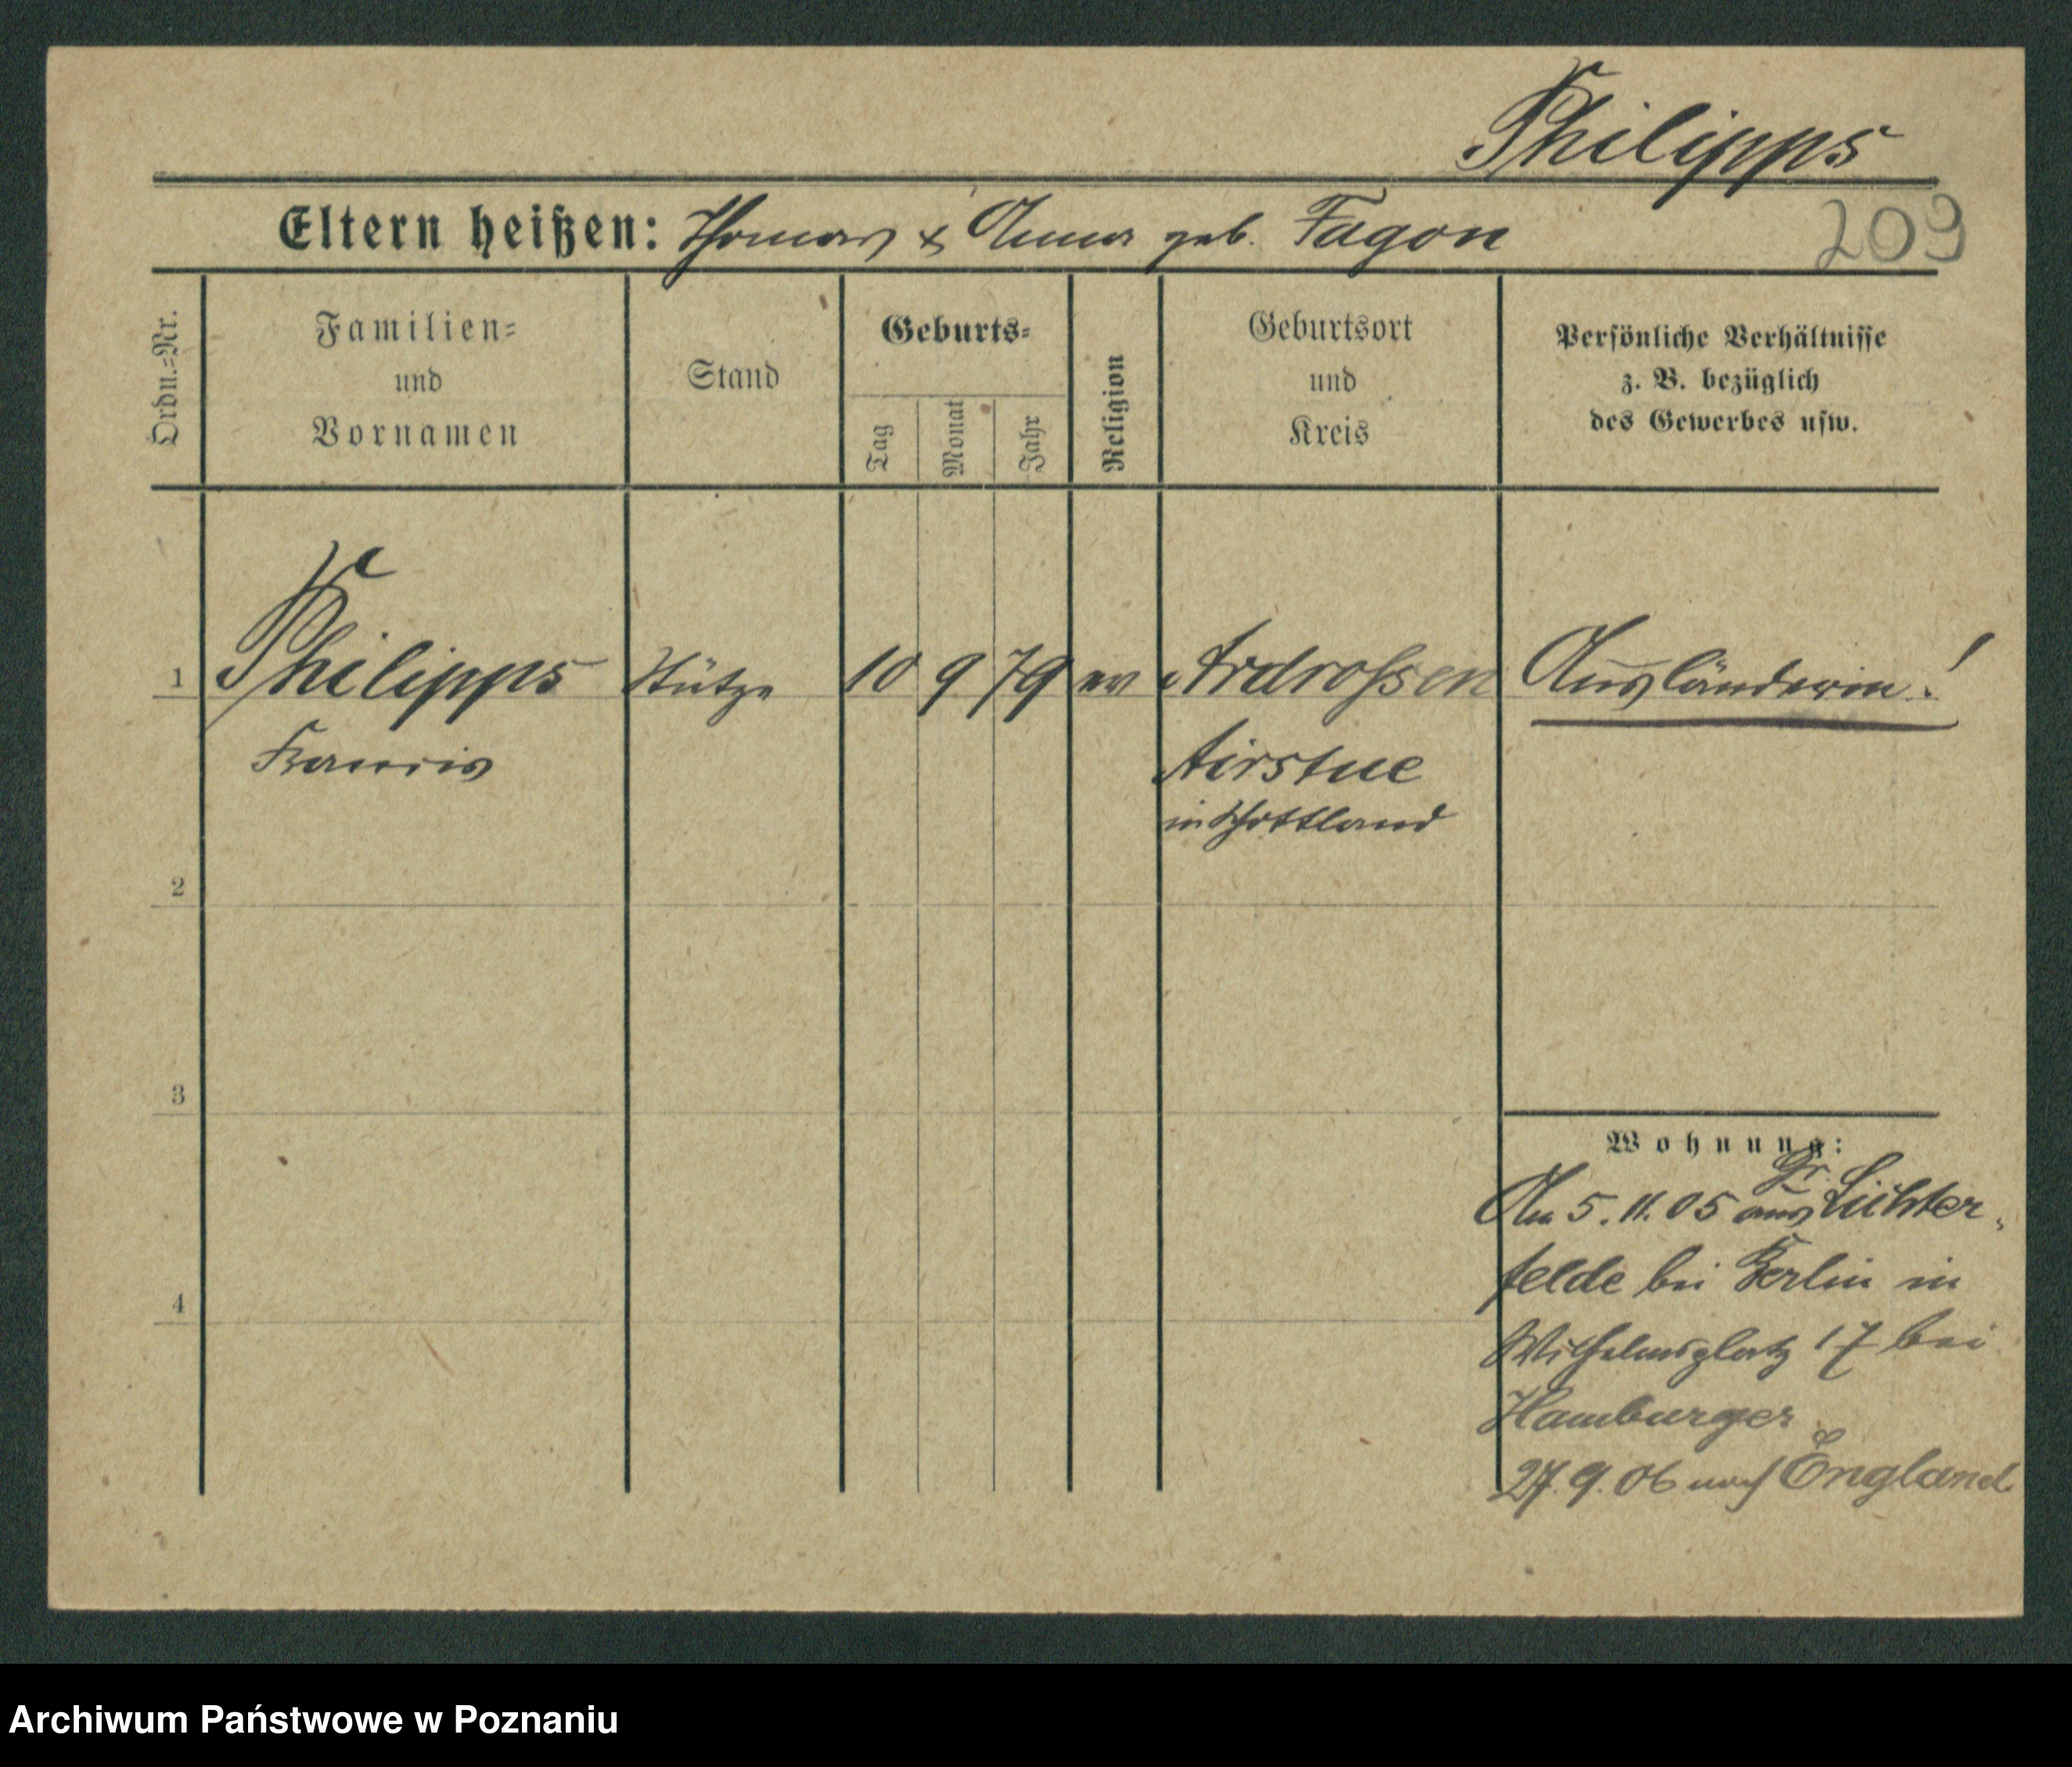 Philipps
209
Eltern heißen: Thomas & Anna geb. Fagon
Ordn.=Nr.
Familien=
und
Vornamen
Stand
Geburts=
Tag
Monat
Jahr
Religion
Geburtsort
und
Kreis
Persönliche Verhältnisse
z. B. bezüglich
des Gewerbes usw.
1 Philipps Stütze 10 9 79 ev Ardrossen Ausländerin!
Francis Airstue
in Schottland
2
3
4
Wohnung:
Am 5. 11. 05 aus Gr. Lichter-
felde bei Berlin in
Wilhelmsplatz 17 bei
Hamburger
27. 9. 06 nach England
Archiwum Państwowe w Poznaniu